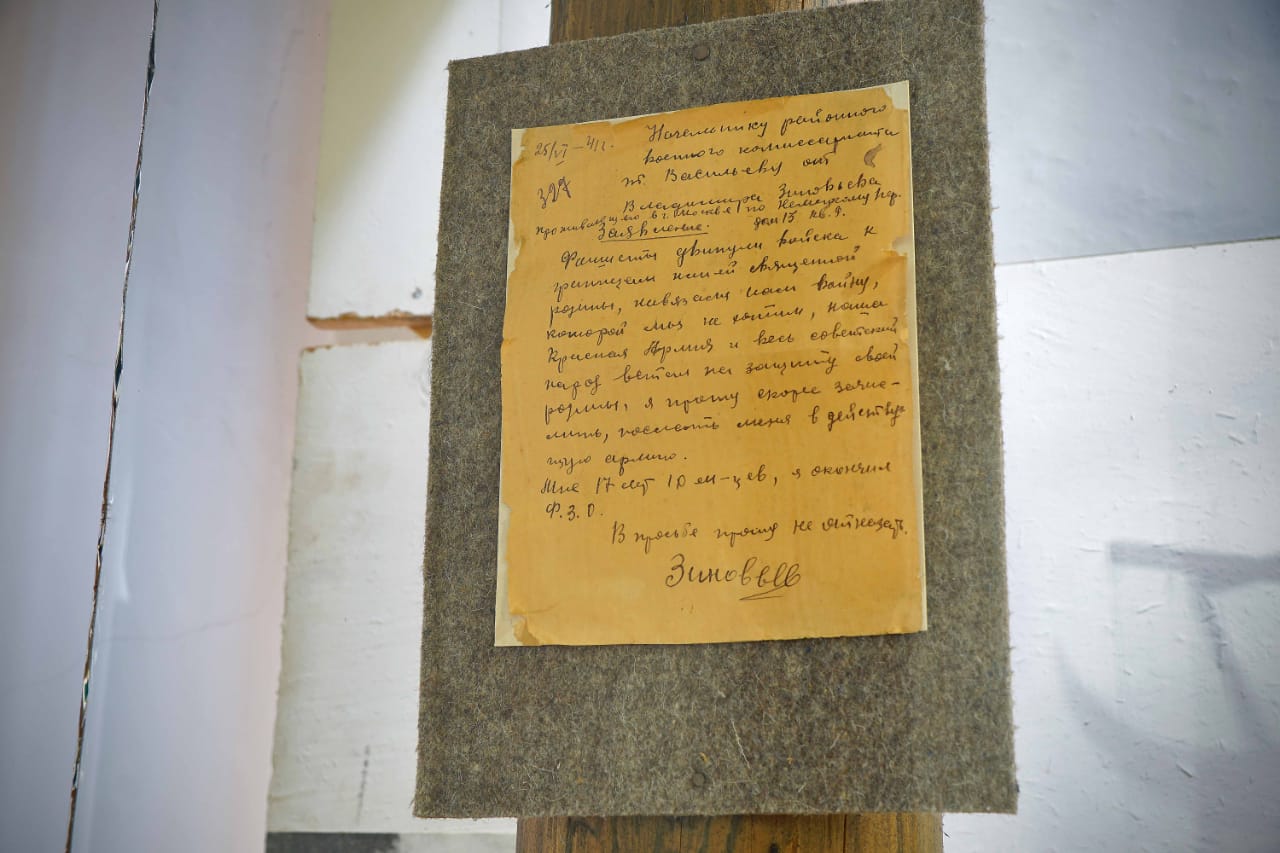 25/VI – 41 г.
Начальнику районного
военного комиссариата
т. Васильеву от
Владимира Зиновьева
проживающего в г. Москве по Немецкому пер.
дом 13 кв. 9.
Заявление.
Фашисты двинули войска к
границам нашей священной
родины, навязали нам войну,
которой мы не хотим, наша
Красная Армия и весь советский
народ встал на защиту своей
родины, я прошу скорее зачис-
лить, послать меня в действую-
щую армию.
Мне 17 лет 10 м-цев, я окончил
Ф.З.О.
В просьбе прошу не отказать.
Зиновьев